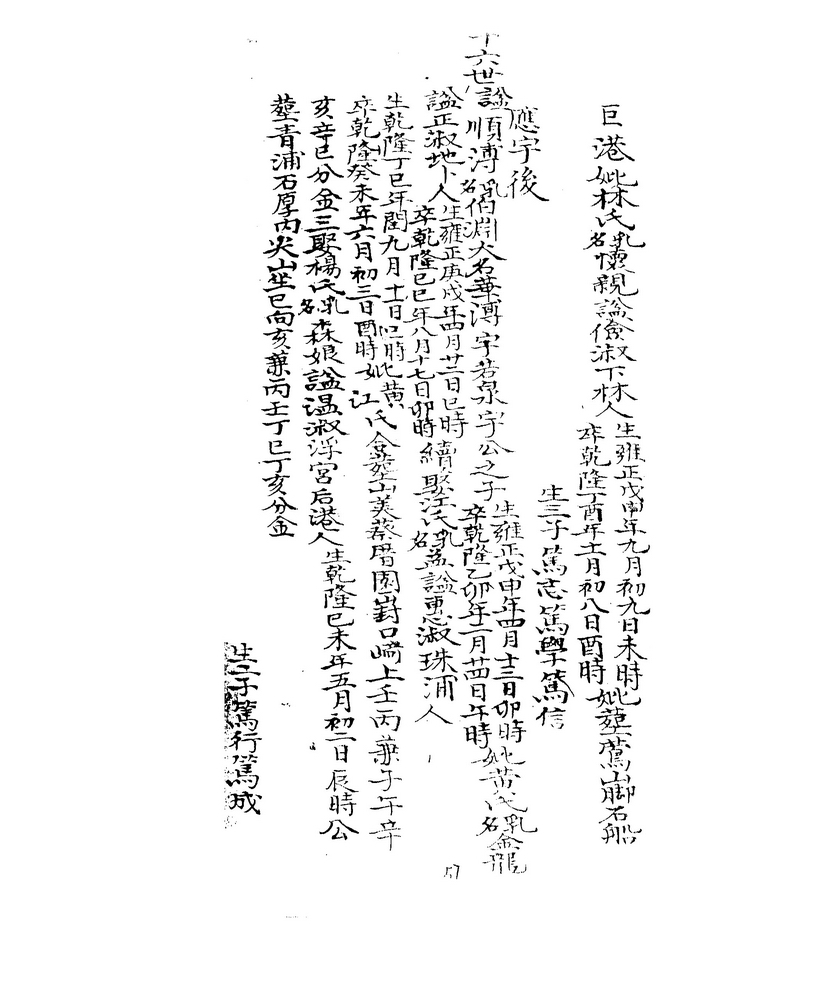 巨港妣林氏乳名懷親諡儉淑下林人生雍正戊申年九月初九日未時卒乾隆丁酉年十一月初八日酉時妣塟鷹山脚石船
生三子篤志篤學篤信
應字後
十六世諡順溥乳名伯淵大名華溥字若泉字公之子生雍正戊申年四月十三日卯時卒乾隆乙卯年二月廿四日午時妣黃氏乳名金龍
諡正淑地卜人生雍正庚戌年四月廿二日巳時卒乾隆己巳年八月十七日卯時續娶江氏乳名益諡惠淑珠浦人
生乾隆丁巳年閏九月十一日巳時妣黃江氏仝塟山美蔡厝園崶口崎上壬丙兼子午辛
卒乾隆癸未年六月初三日酉時
亥辛巳分金三娶楊氏乳名森娘諡温淑浮宮后港人生乾隆己未年五月初二日辰時公
塟青浦石厚內尖山坐巳向亥兼丙壬丁巳丁亥分金
生二子篤行篤成
57